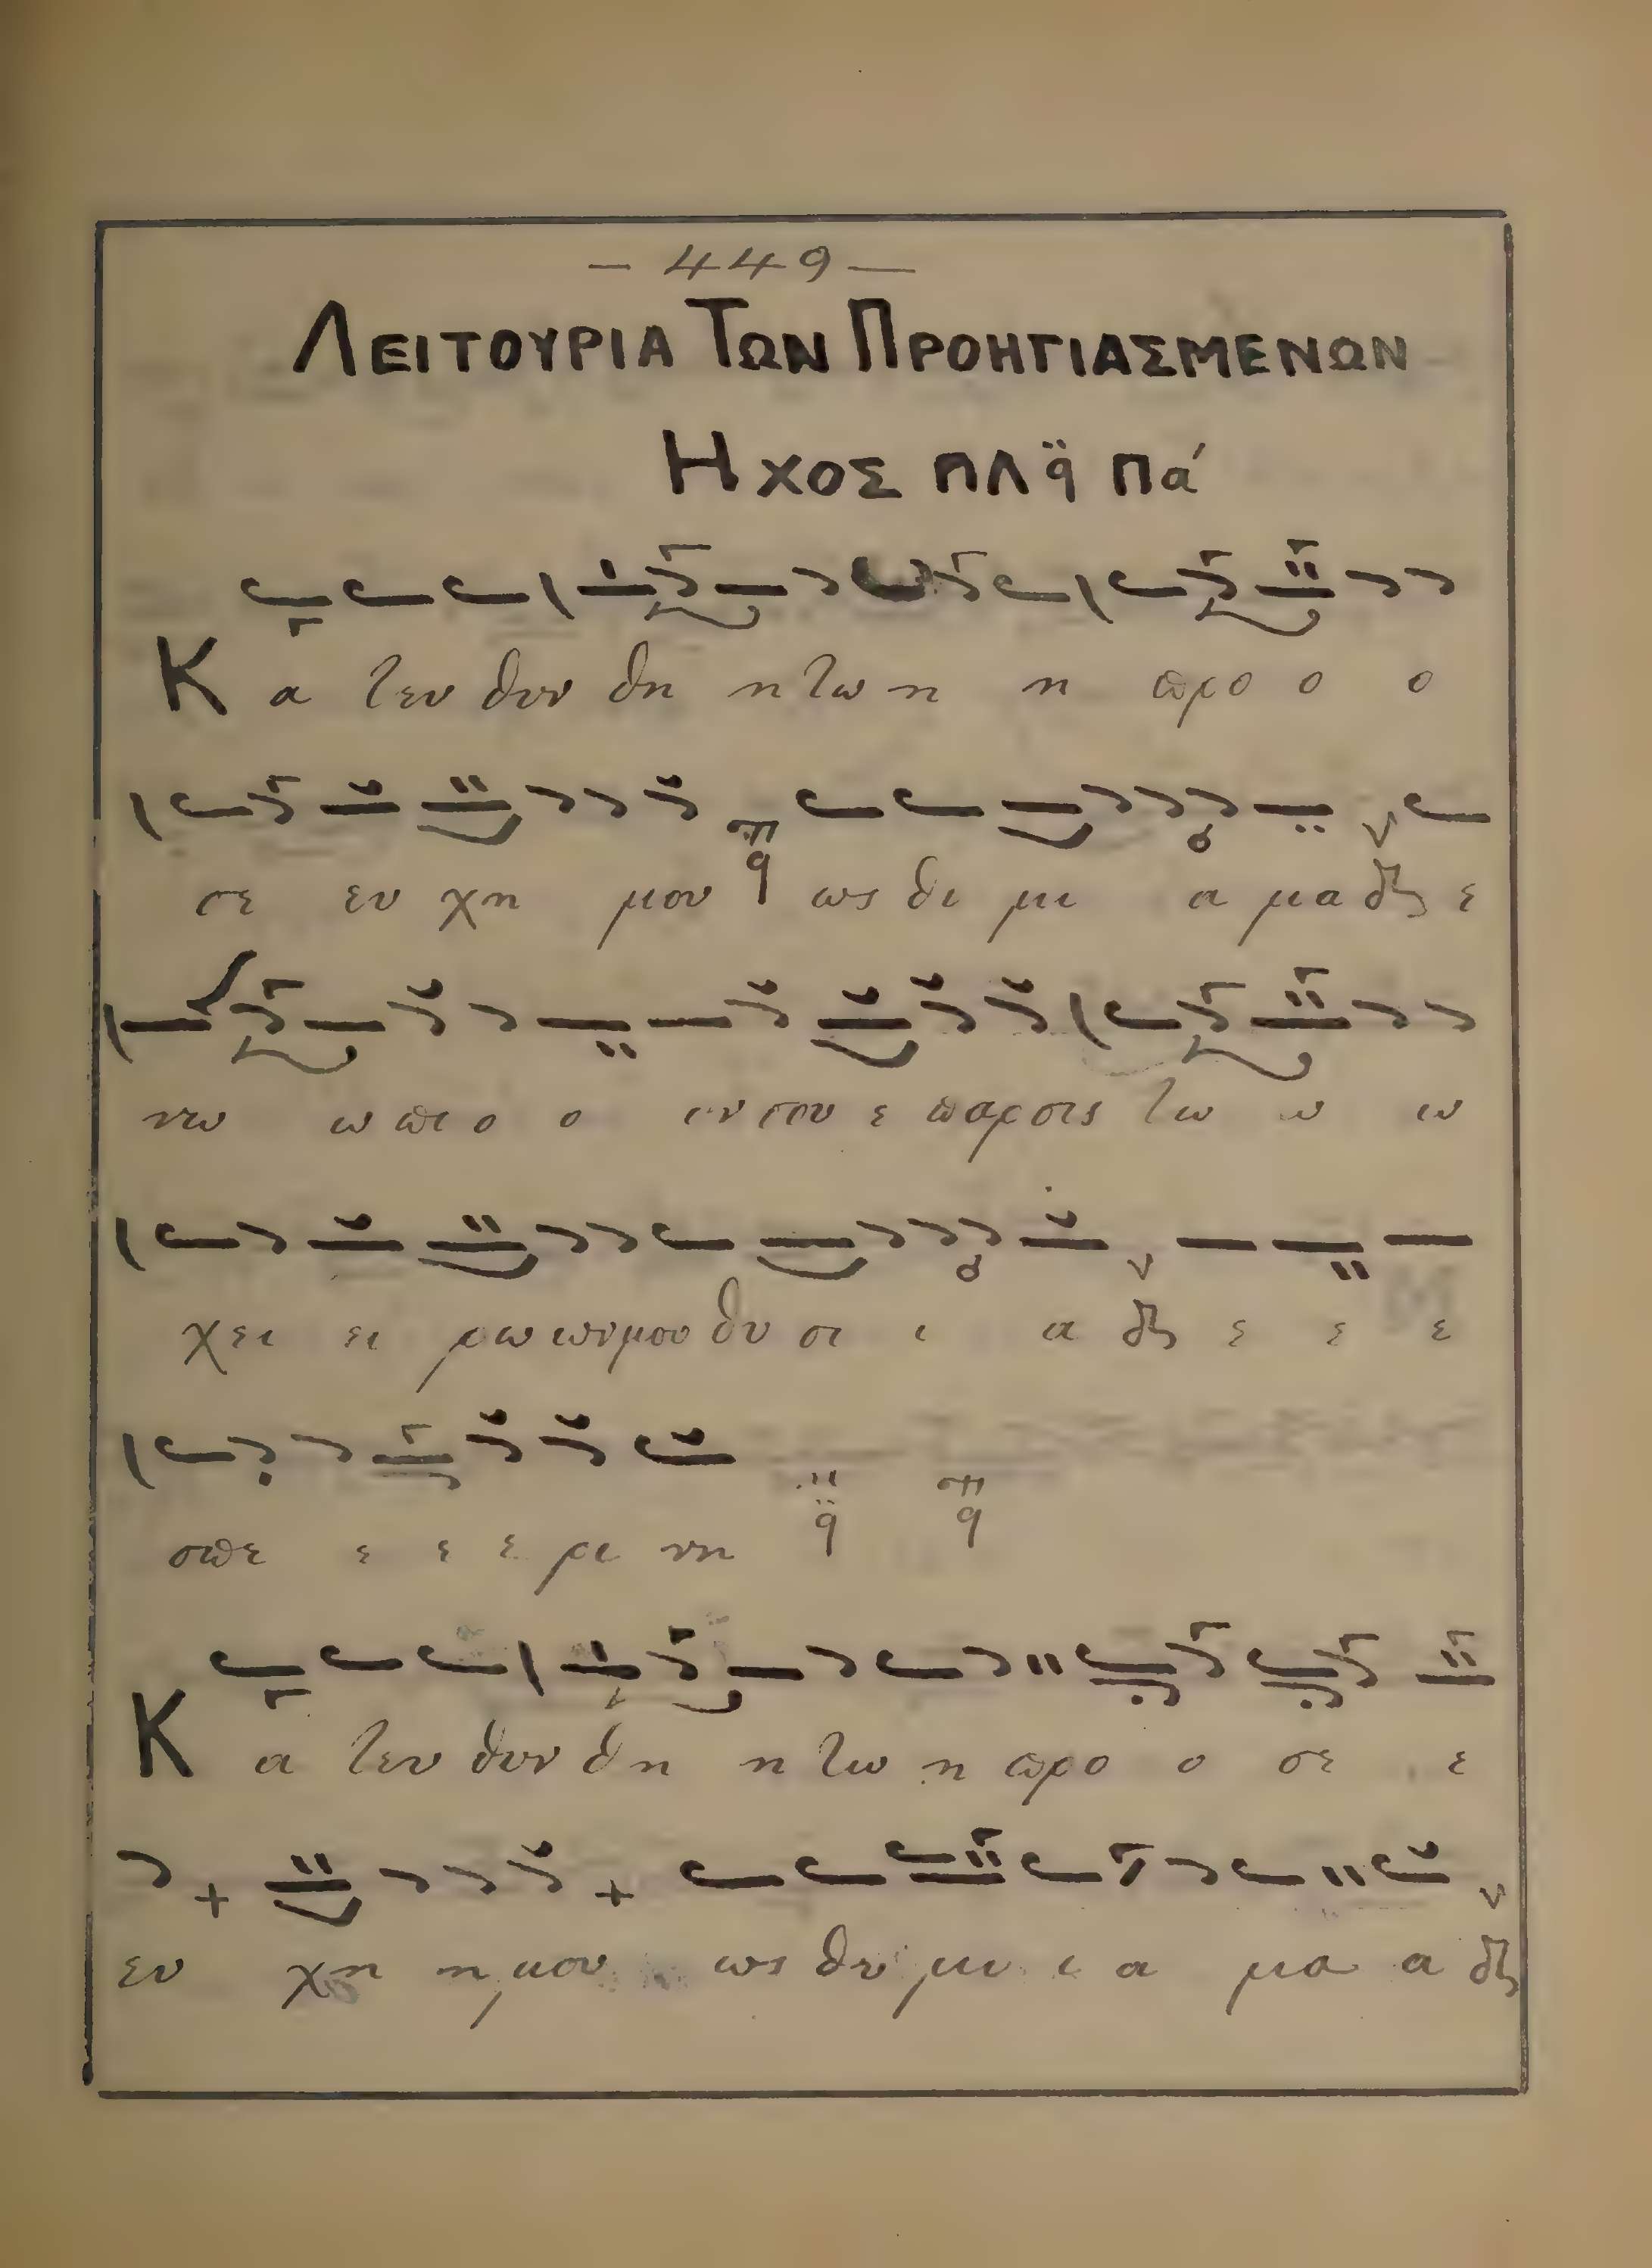 — 449 —
ΛΕΙΤΟΥΡΙΑ ΤΩΝ ΠΡΟΗΓΙΑΣΜΕΝΩΝ
ΗΧΟΣ ΠΛ q̈ Πα´
Κ α τευ θυν θη η τω η η προ ο ο
σε ευ χη μου q ως θι μι α μα δζ ε
νω ω πι ο ο ον σου ε παρσις τω ω ω
χει ει ρω ωνμου θυ σι ι α δζ ε ε ε
σπε ε ε ε ρι νη q̈ q
Κ α τευ θυν θη η τω η προ ο σε ε
ευ χη η μου ως θυ μι ι α μα α δζ